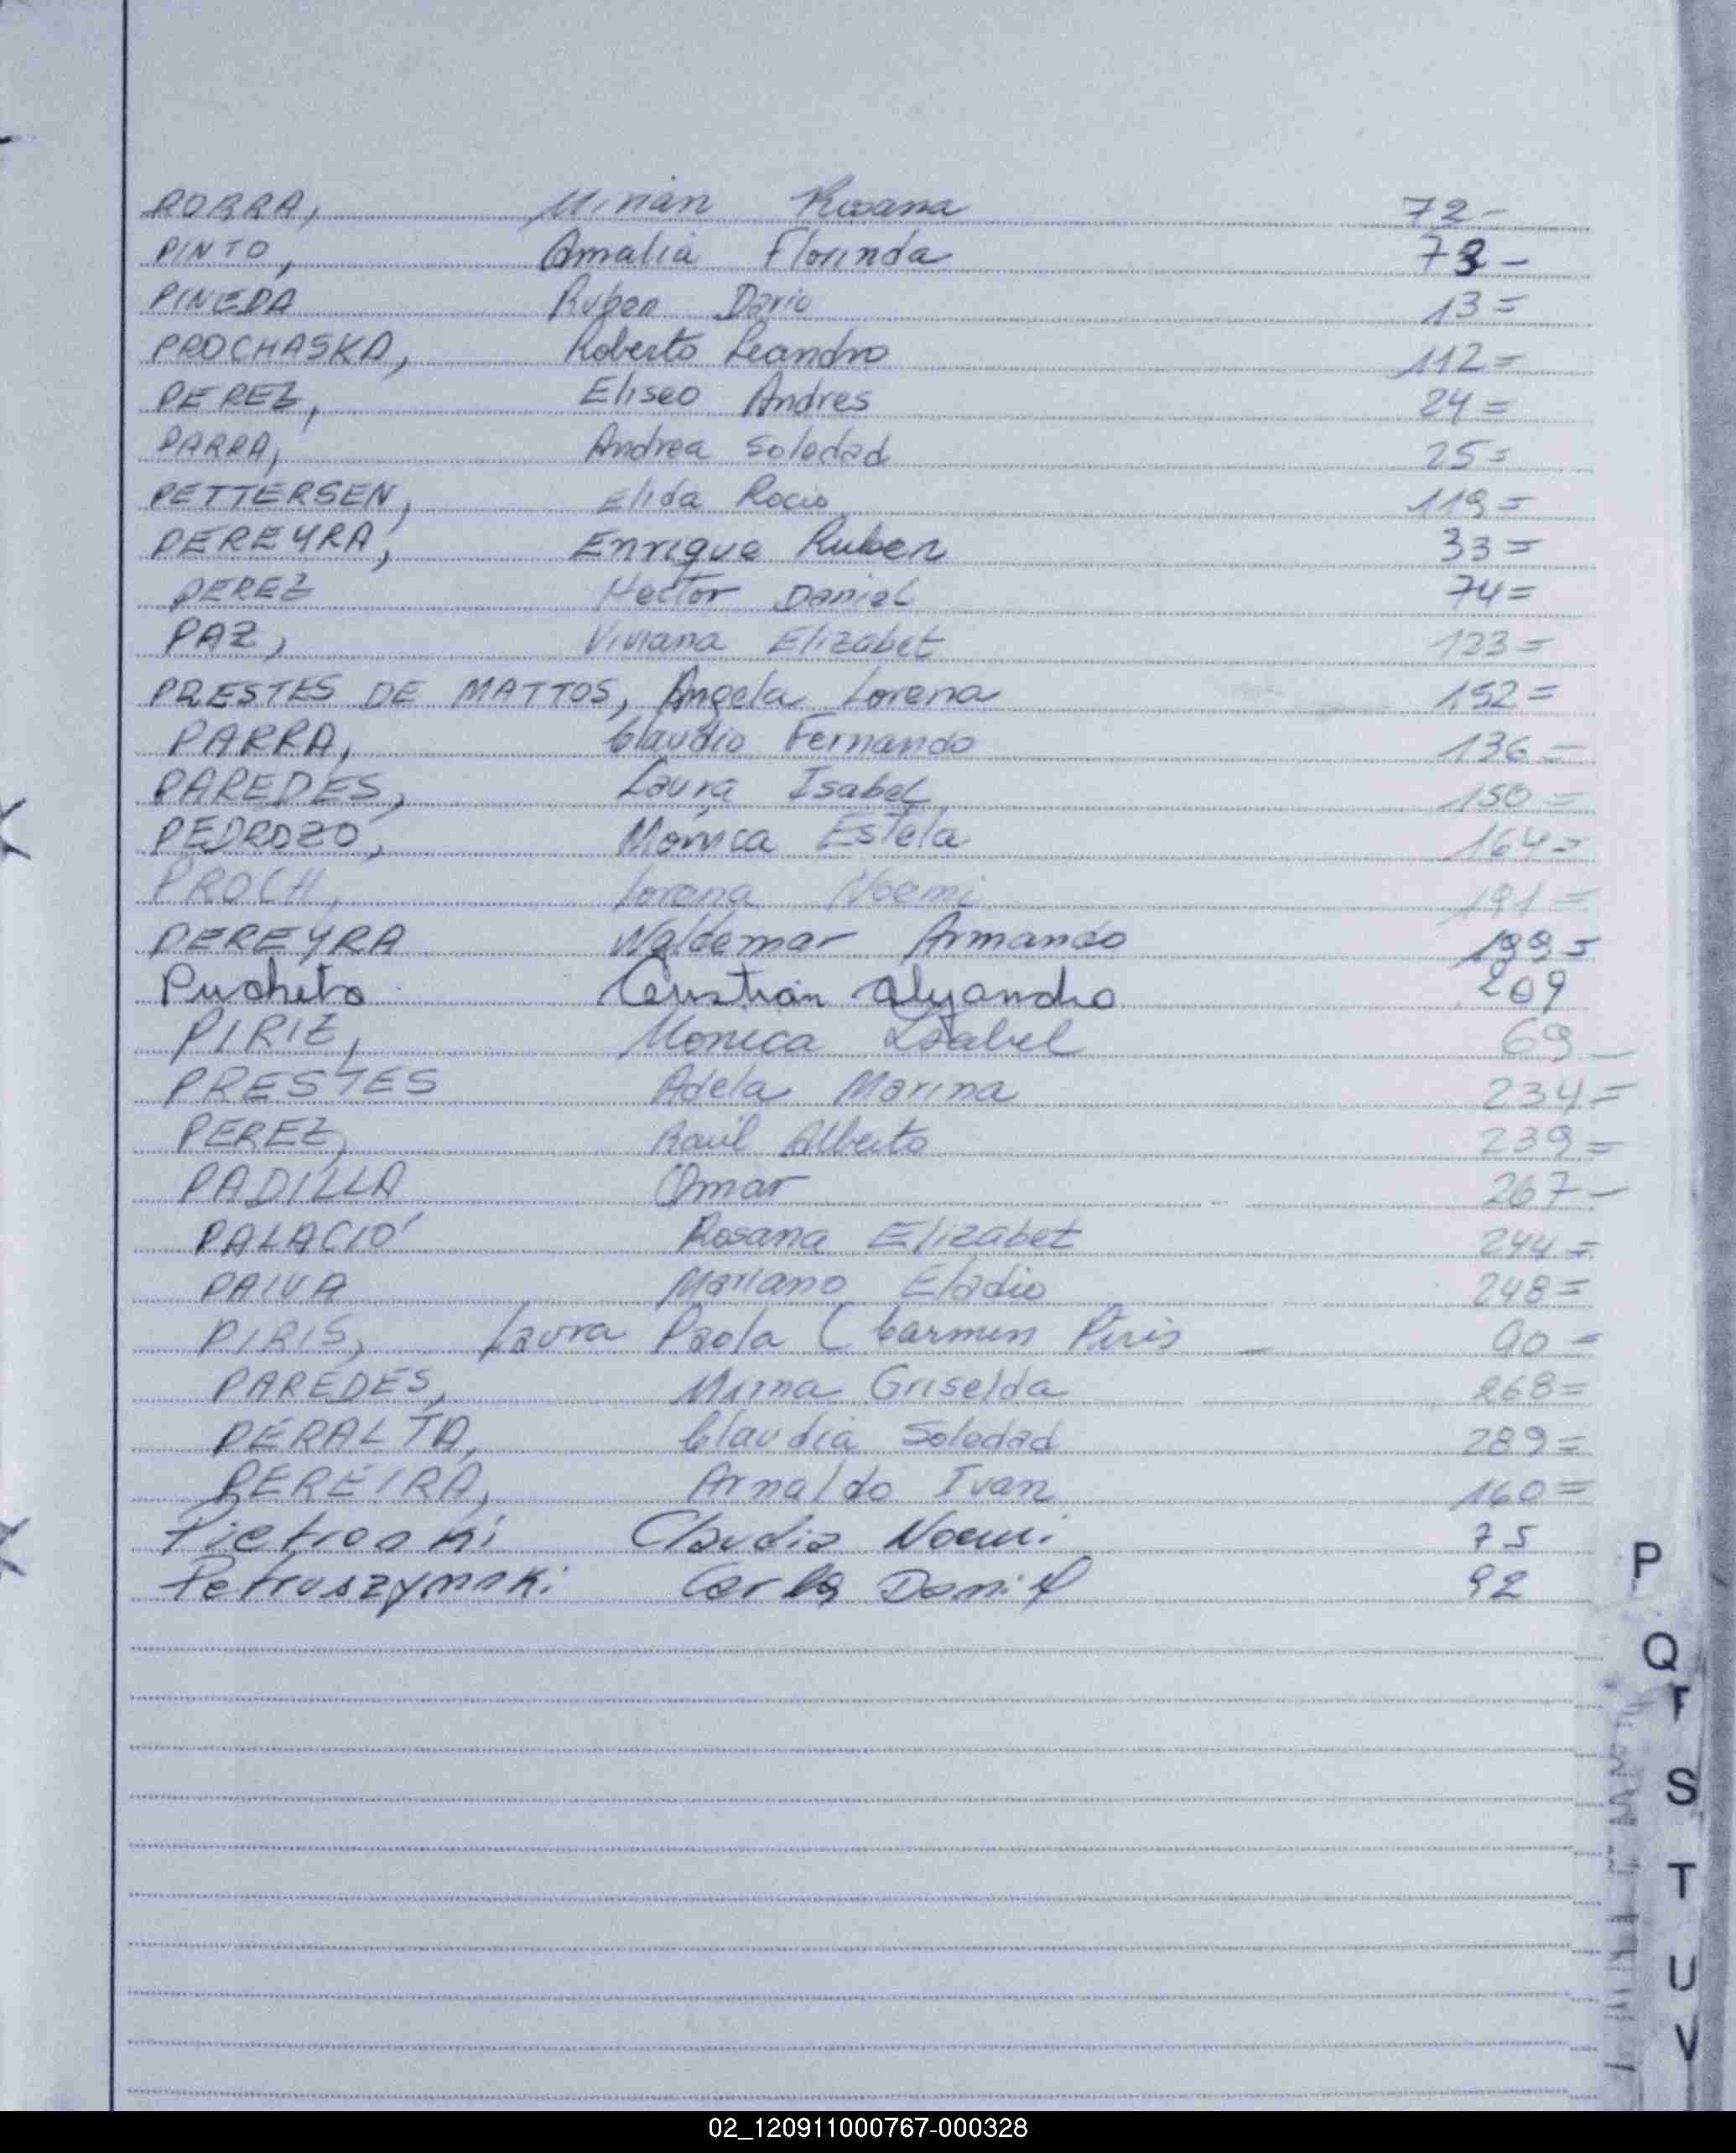 PORRA, Mirian Rosana 72-
PINTO, Amalia Florinda 73-
PINEDA Ruben Dario 13=
PROCHASKA, Roberto Leandro 112=
PEREZ, Eliseo Andres 24=
PARRA, Andrea Soledad 25=
PETTERSEN, Elida Rocio 119=
PEREYRA, Enrique Ruben 33=
PEREZ Hector Daniel 74=
PAZ, Viviana Elizabet 123=
PRESTES DE MATTOS, Angela Lorena 152=
PARRA, Claudio Fernando 136=
PAREDES, Laura Isabel 150=
PEDROZO, Monica Estela 164=
PROCH, Lorena Noemi 191=
PEREYRA Waldemar Armando 199=
Pucheta Cristian Alejandro 209
PIRIZ, Monica Isabel 69-
PRESTES Adela Marina 234=
PEREZ, Raúl Alberto 239=
PADILLA Omar 267-
PALACIO Rosana Elizabet 244=
PAIVA Mariano Eladio 248=
PIRIS, Laura Paola (Carmen Piris - 90=
PAREDES, Mirna Griselda 268=
PERALTA, Claudia Soledad 289=
PEREIRA, Arnaldo Ivan 160=
Pietroski Claudia Noemi 75
Petruszynski Carlos Daniel 92
P
Q
S
T
U
V
02_120911000767-000328